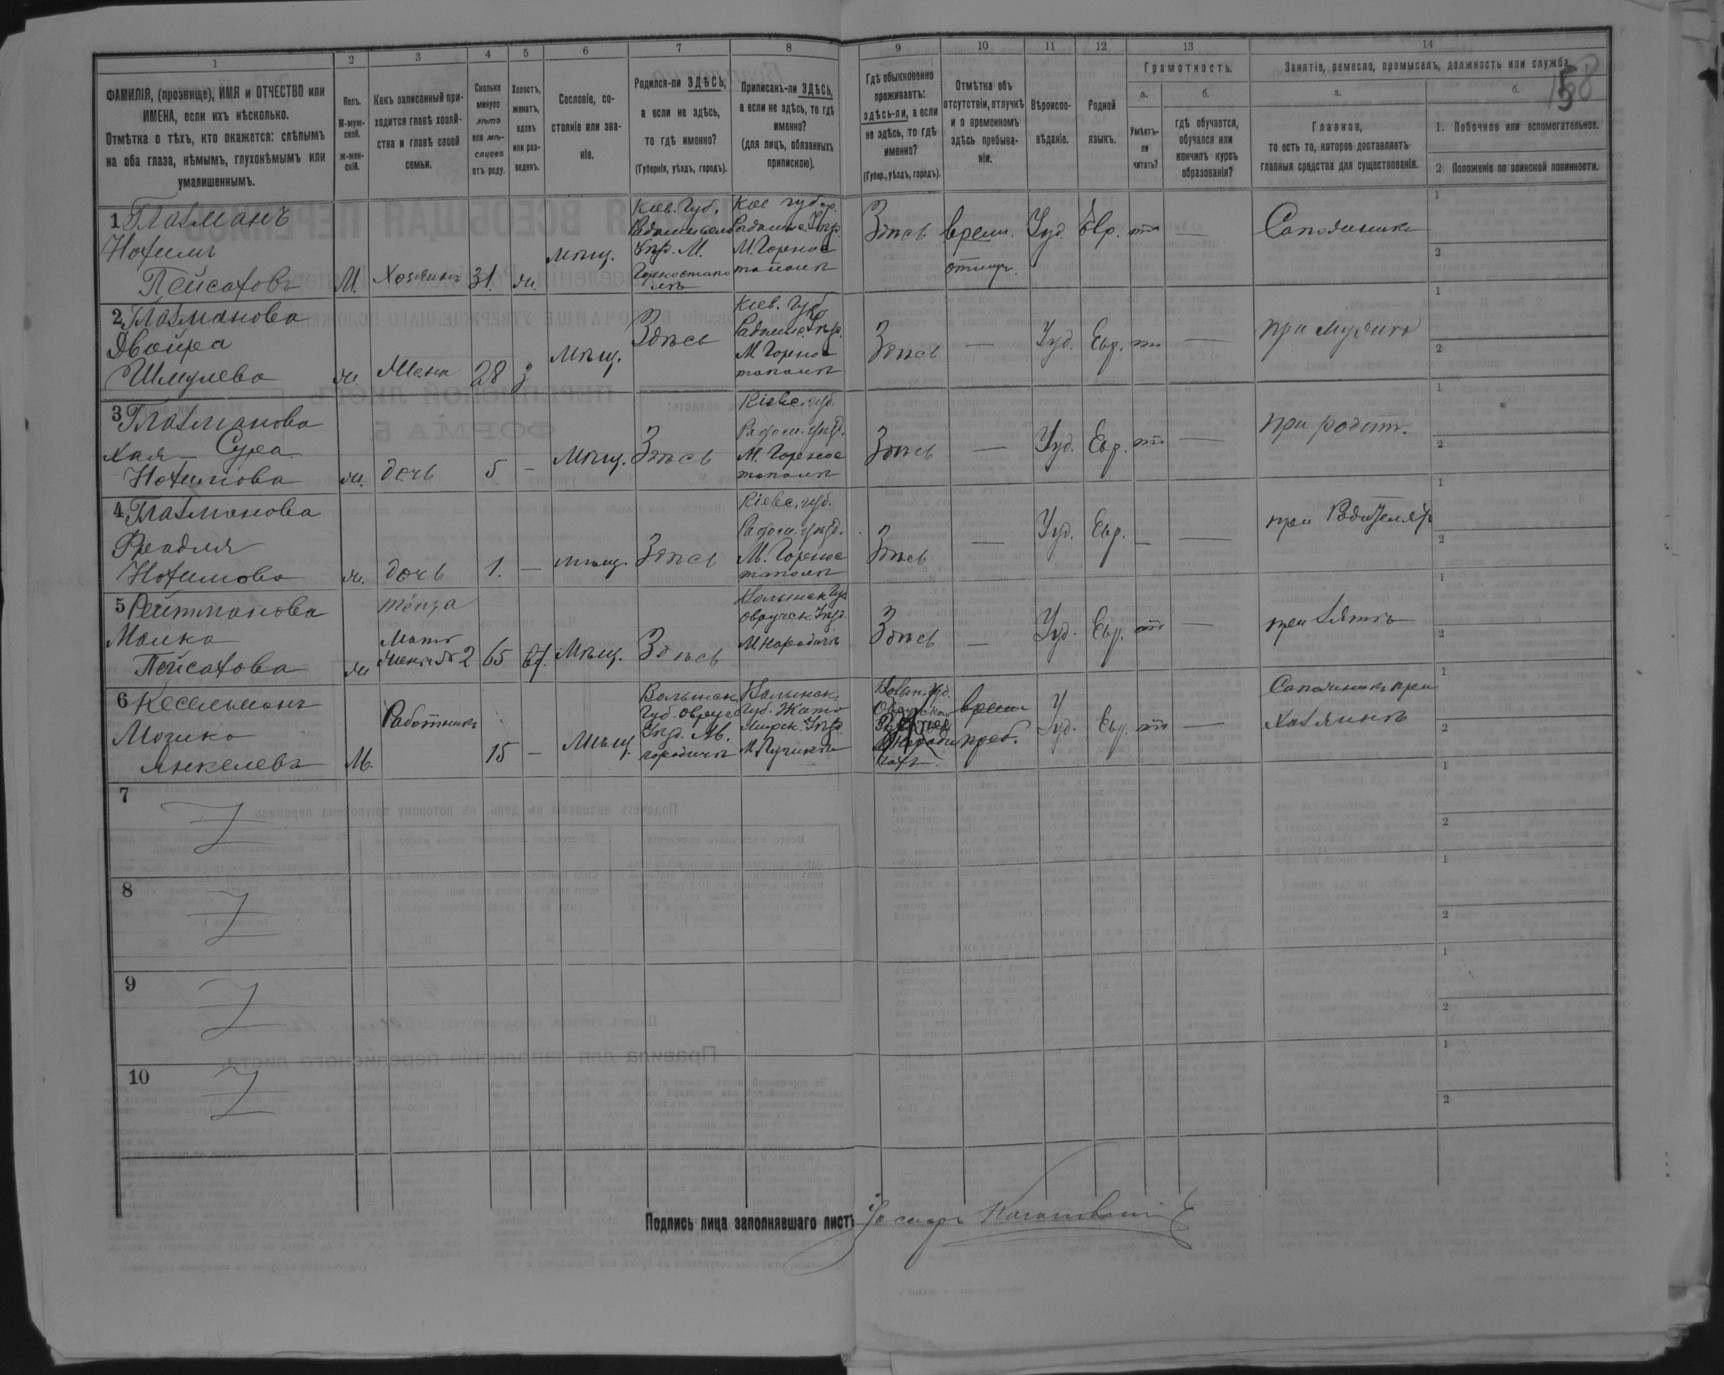 1 2 3 4 5 6 7 8 9 10 11 12 13 14
ФАМИЛІЯ, (прозвище), ИМЯ и ОТЧЕСТВО или
ИМЕНА, если ихъ нѣсколько.
Отмѣтка о тѣхъ, кто окажется: слѣпымъ
на оба глаза, нѣмымъ, глухонѣмымъ или
умалишеннымъ.
Полъ.
М-муж-
ской.
ж-жен-
скій.
Какъ записанный при-
ходится главѣ хозяй-
ства и главѣ своей
семьи.
Сколько
минуло
лѣтъ
или мѣ-
сяцевъ
отъ роду.
Холостъ,
женатъ,
вдовъ
или раз-
веденъ.
Сословіе, со-
стояніе или зва-
ніе.
Родился-ли ЗДѢСЬ,
а если не здѣсь,
то гдѣ именно?
(Губернія, уѣздъ, городъ).
Приписанъ-ли ЗДѢСЬ,
а если не здѣсь, то гдѣ
именно?
(для лицъ, обязанныхъ
припискою).
Гдѣ обыкновенно
проживаетъ:
здѣсь-ли, а если
не здѣсь, то гдѣ
именно?
(Губер., уѣздъ, городъ).
Отмѣтка объ
отсутствіи, отлучкѣ
и о временномъ
здѣсь пребыва-
ніи.
Вѣроиспо-
вѣданіе.
Родной
языкъ.
Грамотность.
а.
Умѣетъ-
ли
читать?
б.
гдѣ обучается,
обучался или
кончилъ курсъ
образованія?
Занятіе, ремесло, промыселъ, должность или служба.
а.
Главное,
то есть то, которое доставляетъ
главныя средства для существованія.
б.
1. Побочное или вспомогательное.
2 Положеніе по воинской повинности.
158
1 Глазманъ
Нохимъ
Пейсаховъ
М. Хозяинъ 31. ж. мѣщ.
Кіев. Губ.
Уѣзд. М.
М. Горнос
Здѣсь врем. Іуд. Евр.
Сапожникъ
2 Глазманова
Двойра
Шмулева
ж. Жена 28 з мѣщ. Здѣсь
Кіев. Губ
М Горнос
тополя
Здѣсь — Іуд. Евр. —
при мужѣ
3 Глазманова
Хая-Сура
Нохимова
ж. дочь 5 — мѣщ. Здѣсь
Кіевс. губ.
Радом. уѣзд.
М. Горнос
тополя
Здѣсь — Іуд. Евр. —
при родит.
4 Глазманова
Фрадля
Нохимова
ж. дочь 1. — мѣщ. Здѣсь
Кіевс. губ.
Радом. уѣзд.
М. Горнос
тополя
Здѣсь — Іуд. Евр. —
при Родителях
5 Рейтманова
Малка
Пейсахова
ж тёща
Мать
жены № 2 65 вд. Мѣщ. Здѣсь
Волынск Губ
Овручск Уѣзд
М Народичи
Здѣсь — Іуд. Евр. —
при зятѣ
6 Кесельманъ
Мошко
Янкелевъ
М. Работникъ 15 — Мѣщ
Волынск
Губ. Овруч
Уѣзд. М.
Народичи
Волынск.
Губ. Жито
мирск. Уѣзд.
Волын. Губ.
врем
преб.
Іуд. Евр. —
Сапожникъ при
хозяинѣ
7
8
9
10
Подпись лица заполнявшаго листъ